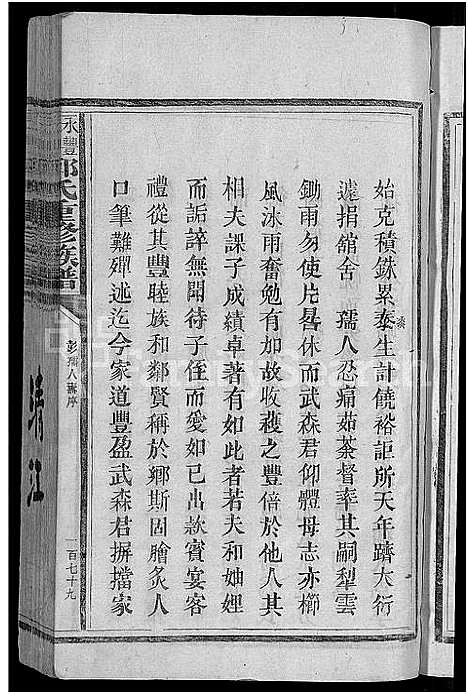 始克積銖累黍生計饒裕詎所天年躋大衍
遽捐舘舍 孺人忍痛茹荼督率其嗣犁雲
鋤雨勿使片晷休而武森君仰體母志亦櫛
風沐雨奮勉有加故收穫之豐倍於他人其
相夫課子成績卓著有如此者若夫和妯娌
而詬誶無聞待子侄而愛如已出款賓宴客
禮從其豐睦族和鄰賢稱於鄉斯固膾炙人
口筆難殫述迄今家道豐盈武森君摒擋家
永豐 氏重修族譜
彭孺人壽序
一百七十九
清江